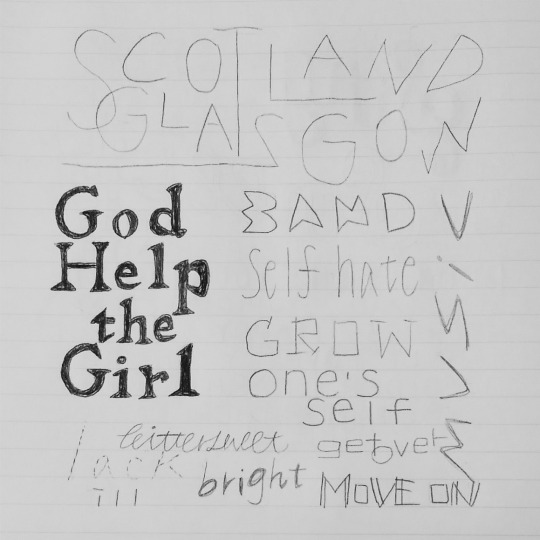 SCOTLAND
GLASGOW
God
Help
the
Girl
BAND
self hate
GROW
one's
self
bittersweet
get over
lack
bright
MOVE ON
ill